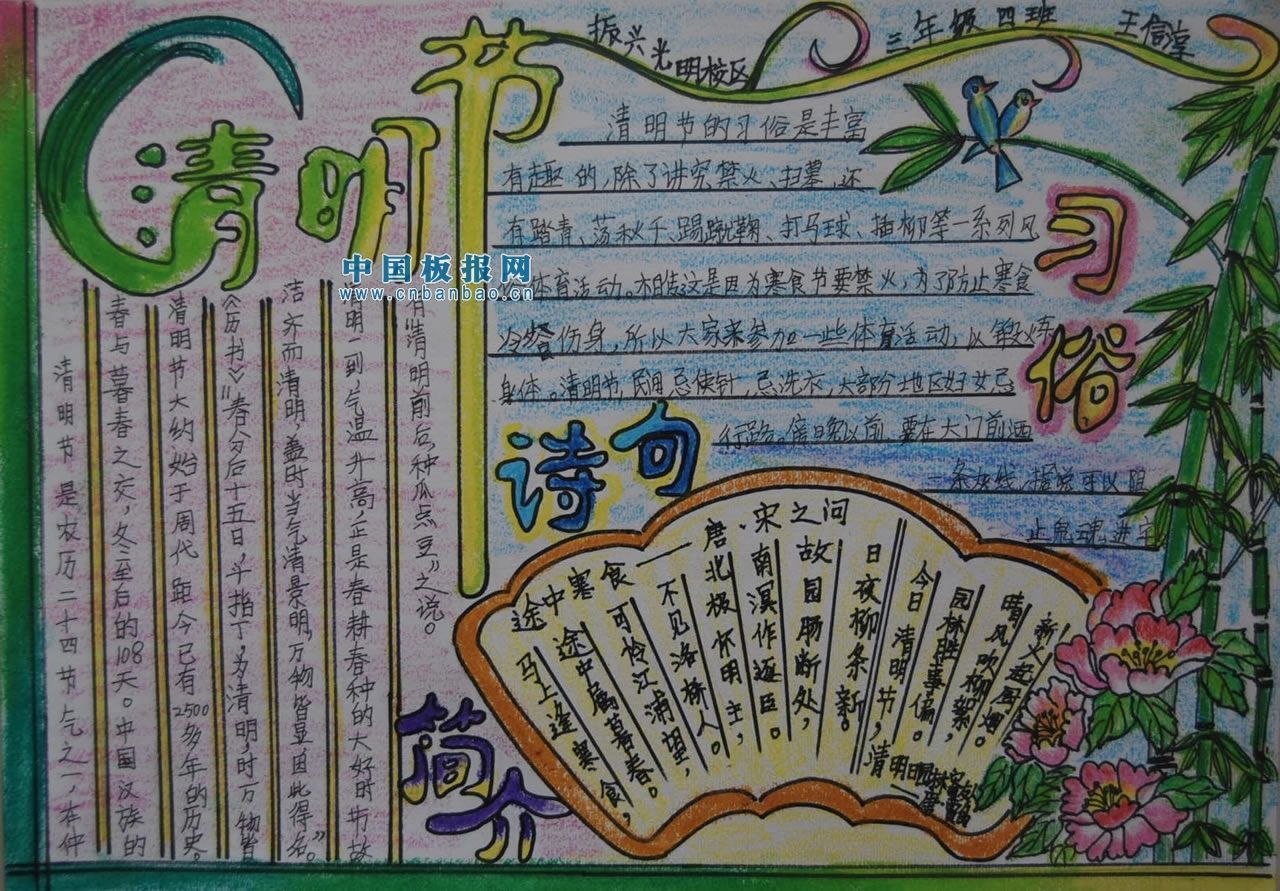 清明节
振兴光明校区
三年级四班
王信
清明节的习俗是丰富
有趣的,除了讲究禁火、扫墓,还
有踏青、荡秋千、踢蹴鞠、打马球、插柳等一系列风
体育活动。相传这是因为寒食节要禁火,为了防止寒食
冷餐伤身,所以大家来参加一些体育活动,以锻炼
身体。清明节,民间忌使针,忌洗衣,大部分地区妇女忌
行路。傍晚以前,要在大门前洒
一条灰线,据说可以阻
止鬼魂进宅
习俗
中国板报网
www.cnbanbao.cn
清明节是农历二十四节气之一,在仲
春与暮春之交,冬至后的108天。中国汉族的
清明节大约始于周代距今已有2500多年的历史。
《历书》:“春分后十五日,斗指丁,为清明,时万物皆
洁齐而清明,盖时当气清景明,万物皆显,因此得名。”
清明一到,气温升高,正是春耕春种的大好时节,故
有“清明前后,种瓜点豆”之说。
简介
诗句
途中寒食
唐·宋之问
马上逢寒食,
途中属暮春。
可怜江浦望,
不见洛桥人。
北极怀明主,
南溟作逐臣。
故园肠断处,
日夜柳条新。
清明日
今日清明节,
园林胜事偏。
晴风吹柳絮,
新火起厨烟。